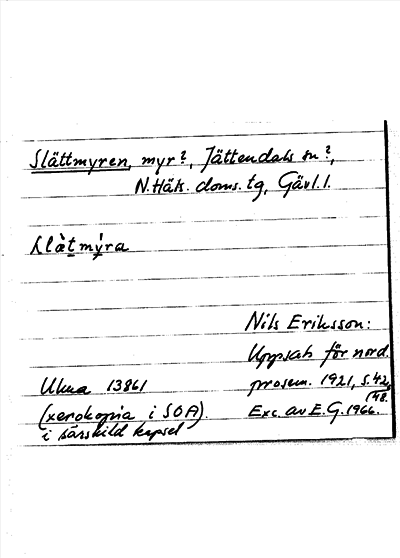 Slättmyren, myr?, Jättendals sn?,
N.Häls. doms.tg, Gävl.l.
slàtmýra
Nils Eriksson:
Uppsats för nord.
Ulma 13861 prosem. 1921, s.42,
148.
(xerokopia i SOA). Exc. av E.G. 1966.
i särskild kapsel